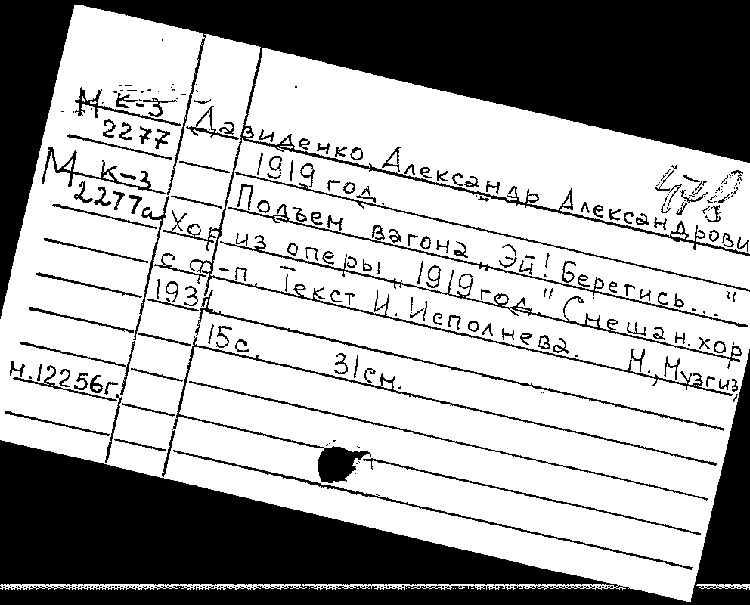 М К-3
2277
Давиденко, Александр Александрови
478
1919 год.
М К-3
2277а
Подъем вагона „Эй! Берегись..."
Хор из оперы „1919 год." Смешан. хор
с ф-п. Текст И. Исполнева. М., Музгиз,
1931.
15с. 31см.
н.12256г.